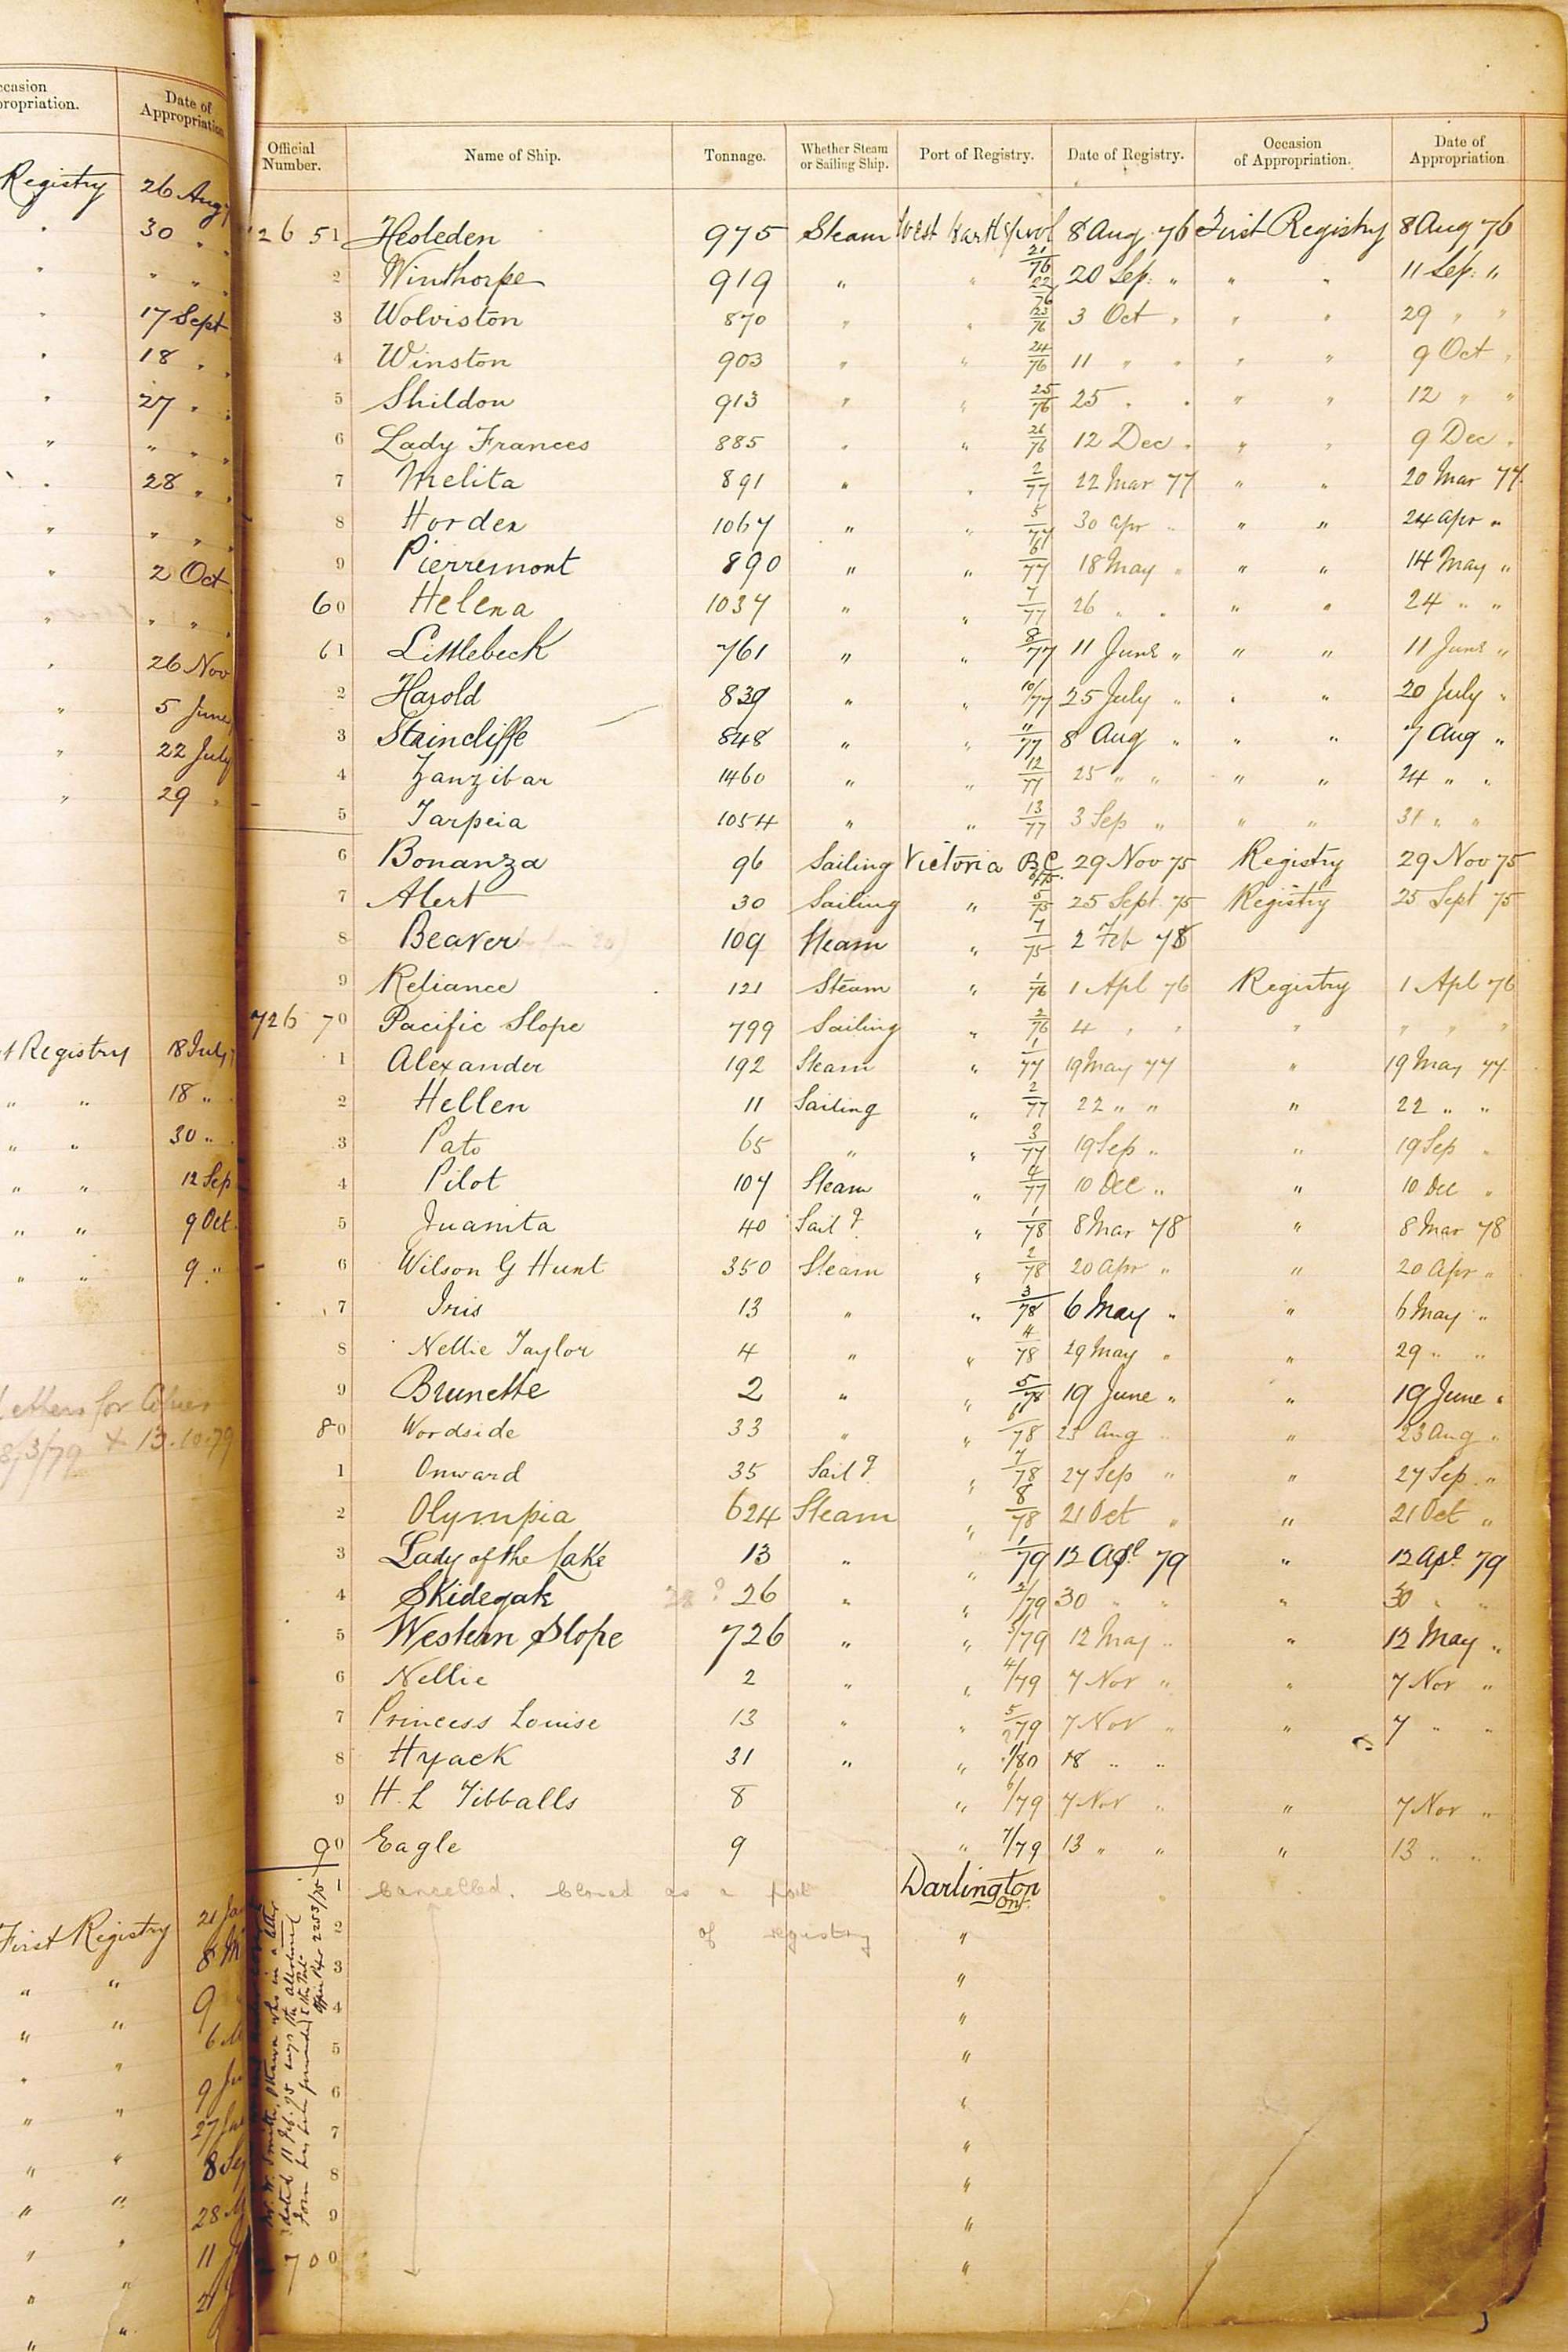 ccasion
propriation.
Date of
Appropriation
Registry 26 Aug
30 "
" "
17 Sept
18 "
27 "
" "
28 "
" "
2 Oct
" "
26 Nov
5 June
22 July
29 "
t Registry 18 July
" " 18 "
" " 30 "
" " 12 Sep
" " 9 Oct
" " 9 "
Letters for
8/3/79 & 13.10.79
First Registry 21 Ja
" " 8 M
" " 9
" " 6 M
" " 9 Ju
" " 27 Ja
" " 8 Se
" " 28 M
" " 11 J
" " 21 J
" "
Official Number. Name of Ship. Tonnage. Whether Steam or Sailing Ship. Port of Registry. Date of Registry. Occasion of Appropriation. Date of Appropriation.
726 51 Hesleden 975 Steam West Hartlepool 21/76 8 Aug 76 First Registry 8 Aug 76
2 Winthorpe 919 " " 22/76 20 Sep " " " 11 Sep "
3 Wolviston 870 " " 23/76 3 Oct " " " 29 " "
4 Winston 903 " " 24/76 11 " " " " 9 Oct "
5 Shildon 913 " " 25/76 25 " " " " 12 " "
6 Lady Frances 885 " " 26/76 12 Dec " " " 9 Dec "
7 Melita 891 " " 2/77 22 Mar 77 " " 20 Mar 77
8 Horden 1067 " " 5/77 30 Apr " " " 24 Apr "
9 Pierremont 890 " " 6/77 18 May " " " 14 May "
60 Helena 1037 " " 7/77 26 " " " " 24 " "
61 Littlebeck 761 " " 8/77 11 June " " " 11 June "
2 Harold 839 " " 10/77 25 July " " " 20 July "
3 Staincliffe 848 " " 11/77 8 Aug " " " 7 Aug "
4 Zanzibar 1460 " " 12/77 25 " " " " 24 " "
5 Tarpeia 1054 " " 13/77 3 Sep " " " 31 " "
6 Bonanza 96 Sailing Victoria BC 29 Nov 75 Registry 29 Nov 75
7 Alert 30 Sailing " 5/75 25 Sept 75 Registry 25 Sept 75
8 Beaver 109 Steam " 7/75 2 Feb 78
9 Reliance 121 Steam " 1/76 1 Apl 76 Registry 1 Apl 76
726 70 Pacific Slope 799 Sailing " 2/76 4 " " " " " "
1 Alexander 192 Steam " 1/77 19 May 77 " 19 May 77
2 Hellen 11 Sailing " 2/77 22 " " " 22 " "
3 Pato 65 " " 3/77 19 Sep " " 19 Sep "
4 Pilot 107 Steam " 4/77 10 Dec " " 10 Dec "
5 Juanita 40 Sail g " 1/78 8 Mar 78 " 8 Mar 78
6 Wilson G Hunt 350 Steam " 2/78 20 Apr " " 20 Apr "
7 Iris 13 " " 3/78 6 May " " 6 May "
8 Nellie Taylor 4 " " 4/78 29 May " " 29 " "
9 Brunette 2 " " 5/78 19 June " " 19 June "
80 Woodside 33 " " 6/78 23 Aug " " 23 Aug "
1 Onward 35 Sail g " 7/78 27 Sep " " 27 Sep "
2 Olympia 624 Steam " 8/78 21 Oct " " 21 Oct "
3 Lady of the Lake 13 " " 1/79 12 Apl 79 " 12 Apl 79
4 Skidegate 28? 26 " " 2/79 30 " " " 30 " "
5 Western Slope 726 " " 3/79 12 May " " 12 May "
6 Nellie 2 " " 4/79 7 Nov " " 7 Nov "
7 Princess Louise 13 " " 5/79 7 Nov " " 7 " "
8 Hyack 31 " " 1/80 18 " "
9 H. L Tibballs 8 " 6/79 7 Nov " " 7 Nov "
90 Eagle 9 " 7/79 13 " " " 13 " "
1 Cancelled. Closed as a port Darlington Ont.
2 of registry "
3 "
4 "
5 "
6 "
7 "
8 "
9 "
700 "
Mr. W. Smith, Ottawa who in a letter
dated 11 Feb. 75 says the allotment
form has been forwarded to this Port
Office Paper 2253/75